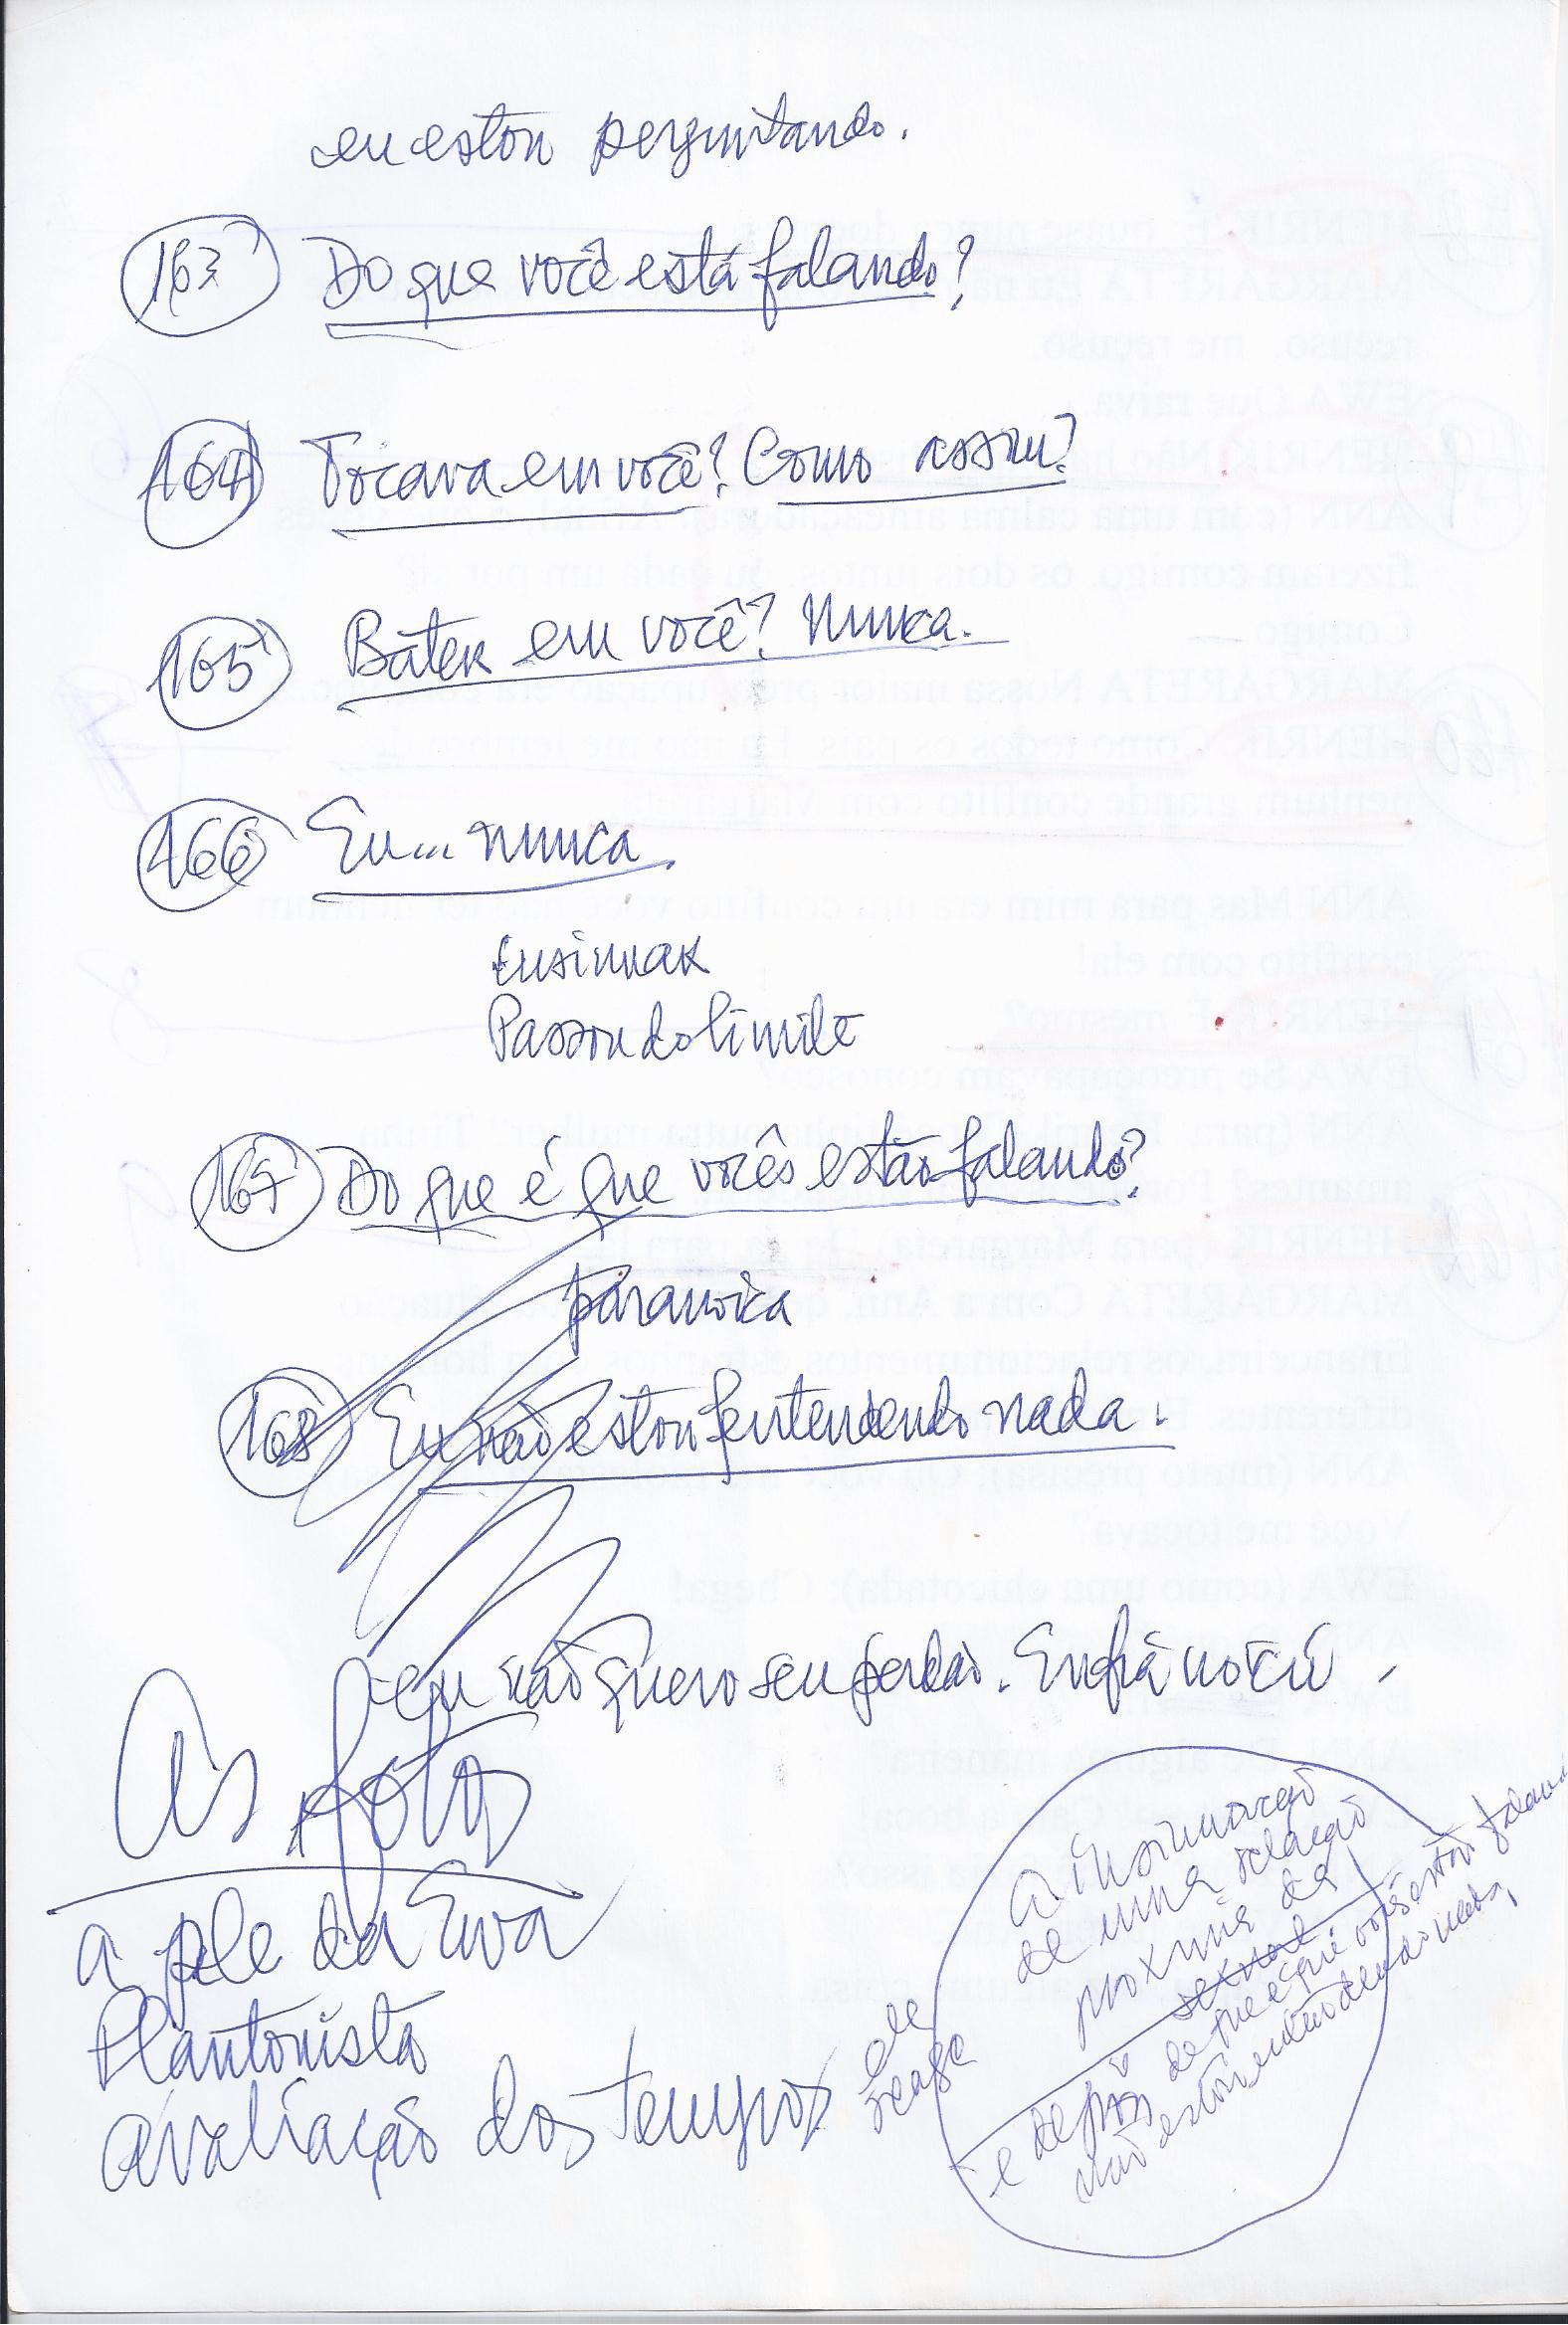 eu estou perguntando.
163 Do que você está falando?
164 Tocava em você? Como assim?
165 Bater em você? Nunca.
166 Eu... nunca
Ensinuar
Passou do limite
167 Do que é que vocês estão falando?
paranoica
168 Eu não estou entendendo nada.
eu não quero seu perdão. Enfiá no cú
As fotos
a pele da Ewa
Plantonista
avaliação dos tempos
ele
reage
a insinuação
de uma relação
proxima da
sexual
e depois de que é que vocês estão
não estou entendendo nada,